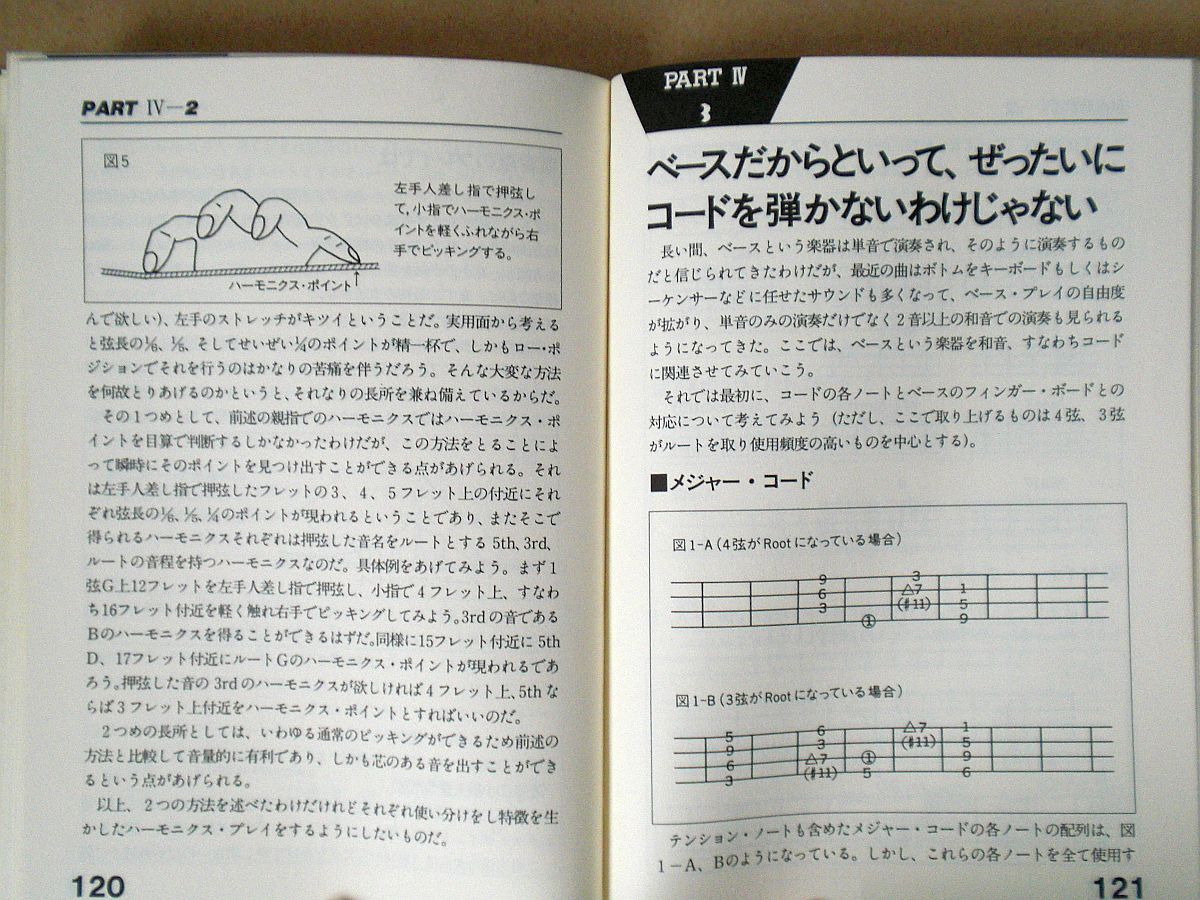 PART Ⅳ—2
図5
左手人差し指で押弦し
て,小指でハーモニクス・ポ
イントを軽くふれながら右
手でピッキングする。
ハーモニクス・ポイント
んで欲しい)、左手のストレッチがキツイということだ。実用面から考える
と弦長の⅙、⅕、そしてせいぜい¼のポイントが精一杯で、しかもロー・ポ
ジションでそれを行うのはかなりの苦痛を伴うだろう。そんな大変な方法
を何故とりあげるのかというと、それなりの長所を兼ね備えているからだ。
その1つめとして、前述の親指でのハーモニクスではハーモニクス・ポ
イントを目算で判断するしかなかったわけだが、この方法をとることによ
って瞬時にそのポイントを見つけ出すことができる点があげられる。それ
は左手人差し指で押弦したフレットの3、4、5フレット上の付近にそれ
ぞれ弦長の⅙、⅕、¼のポイントが現われるということであり、またそこで
得られるハーモニクスそれぞれは押弦した音名をルートとする 5th、3rd、
ルートの音程を持つハーモニクスなのだ。具体例をあげてみよう。まず1
弦G上12フレットを左手人差し指で押弦し、小指で4フレット上、すなわ
ち16フレット付近を軽く触れ右手でピッキングしてみよう。3rdの音である
Bのハーモニクスを得ることができるはずだ。同様に15フレット付近に 5th
D、17フレット付近にルートGのハーモニクス・ポイントが現われるであ
ろう。押弦した音の 3rd のハーモニクスが欲しければ4フレット上、5th な
らば3フレット上付近をハーモニクス・ポイントとすればいいのだ。
2つめの長所としては、いわゆる通常のピッキングができるため前述の
方法と比較して音量的に有利であり、しかも芯のある音を出すことができ
るという点があげられる。
以上、2つの方法を述べたわけだけれどそれぞれ使い分けをし特徴を生
かしたハーモニクス・プレイをするようにしたいものだ。
120
PART Ⅳ
3
ベースだからといって、ぜったいに
コードを弾かないわけじゃない
長い間、ベースという楽器は単音で演奏され、そのように演奏するもの
だと信じられてきたわけだが、最近の曲はボトムをキーボードもしくはシ
ーケンサーなどに任せたサウンドも多くなって、ベース・プレイの自由度
が拡がり、単音のみの演奏だけでなく2音以上の和音での演奏も見られる
ようになってきた。ここでは、ベースという楽器を和音、すなわちコード
に関連させてみていこう。
それでは最初に、コードの各ノートとベースのフィンガー・ボードとの
対応について考えてみよう(ただし、ここで取り上げるものは4弦、3弦
がルートを取り使用頻度の高いものを中心とする)。
■メジャー・コード
図1-A(4弦がRootになっている場合)
9 3
6 △7 1
3 (♯11) 5
① 9
図1-B(3弦がRootになっている場合)
5 6 △7 1
9 3 (♯11) 5
6 △7 ① 9
3 (♯11) 5 6
テンション・ノートも含めたメジャー・コードの各ノートの配列は、図
1-A、Bのようになっている。しかし、これらの各ノートを全て使用す
121